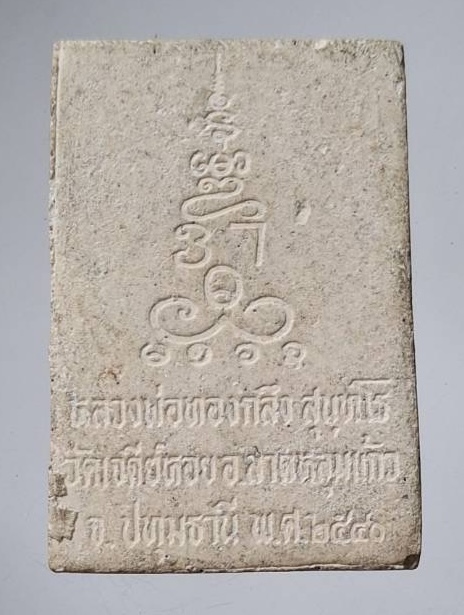 หลวงพ่อทองกลึง สุนฺทโร
วัดเจดีย์หอย อ.ลาดหลุมแก้ว
จ. ปทุมธานี พ.ศ.๒๕๔๐